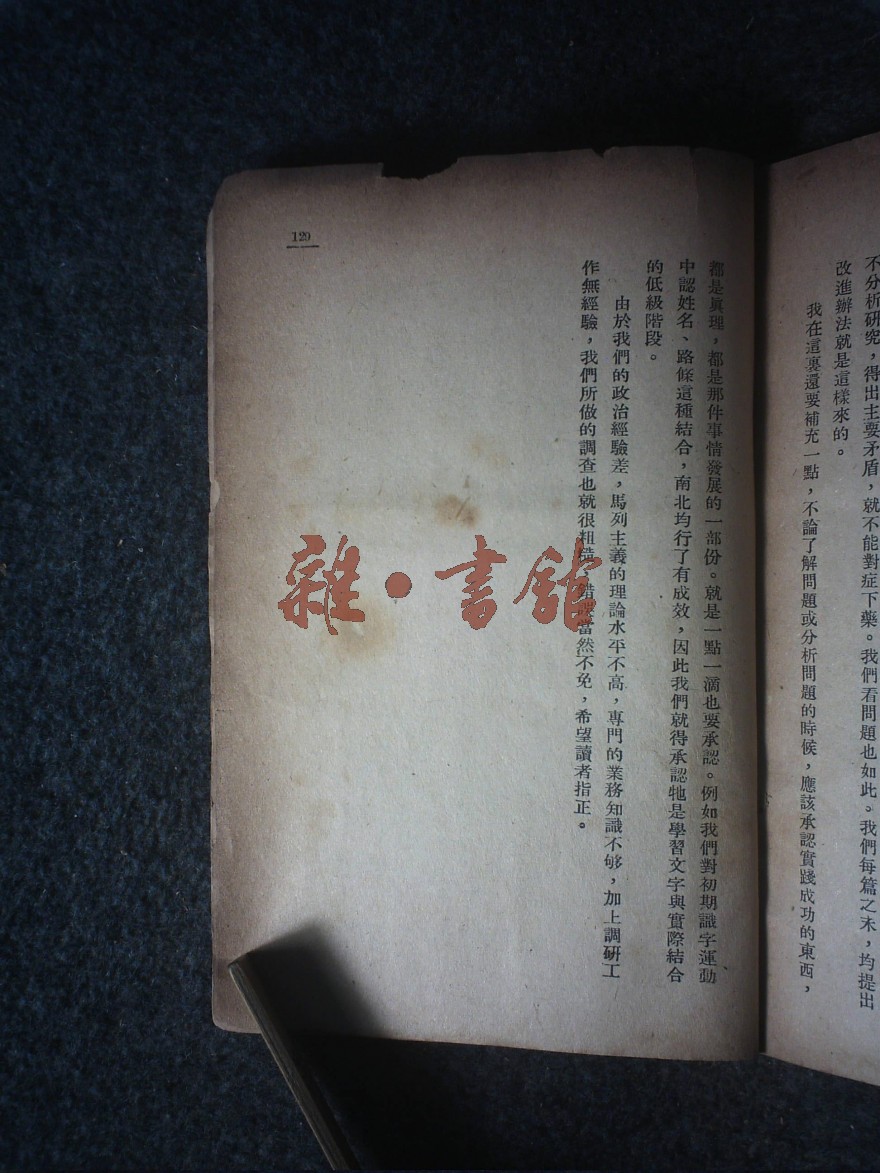 不分析研究，得出主要矛盾，就不能對症下藥。我們看問題也如此。我們每篇之末，均提出
改進辦法就是這樣來的。
我在這裏還要補充一點，不論了解問題或分析問題的時候，應該承認實踐成功的東西，
都是眞理，都是那件事情發展的一部份。就是一點一滴也要承認。例如我們對初期識字運動
中認姓名、路條這種結合，南北均行了有成效，因此我們就得承認牠是學習文字與實際結合
的低級階段。
由於我們的政治經驗差，馬列主義的理論水平不高，專門的業務知識不够，加上調研工
作無經驗，我們所做的調查也就很粗糙，錯誤當然不免，希望讀者指正。
129
雜·書舘